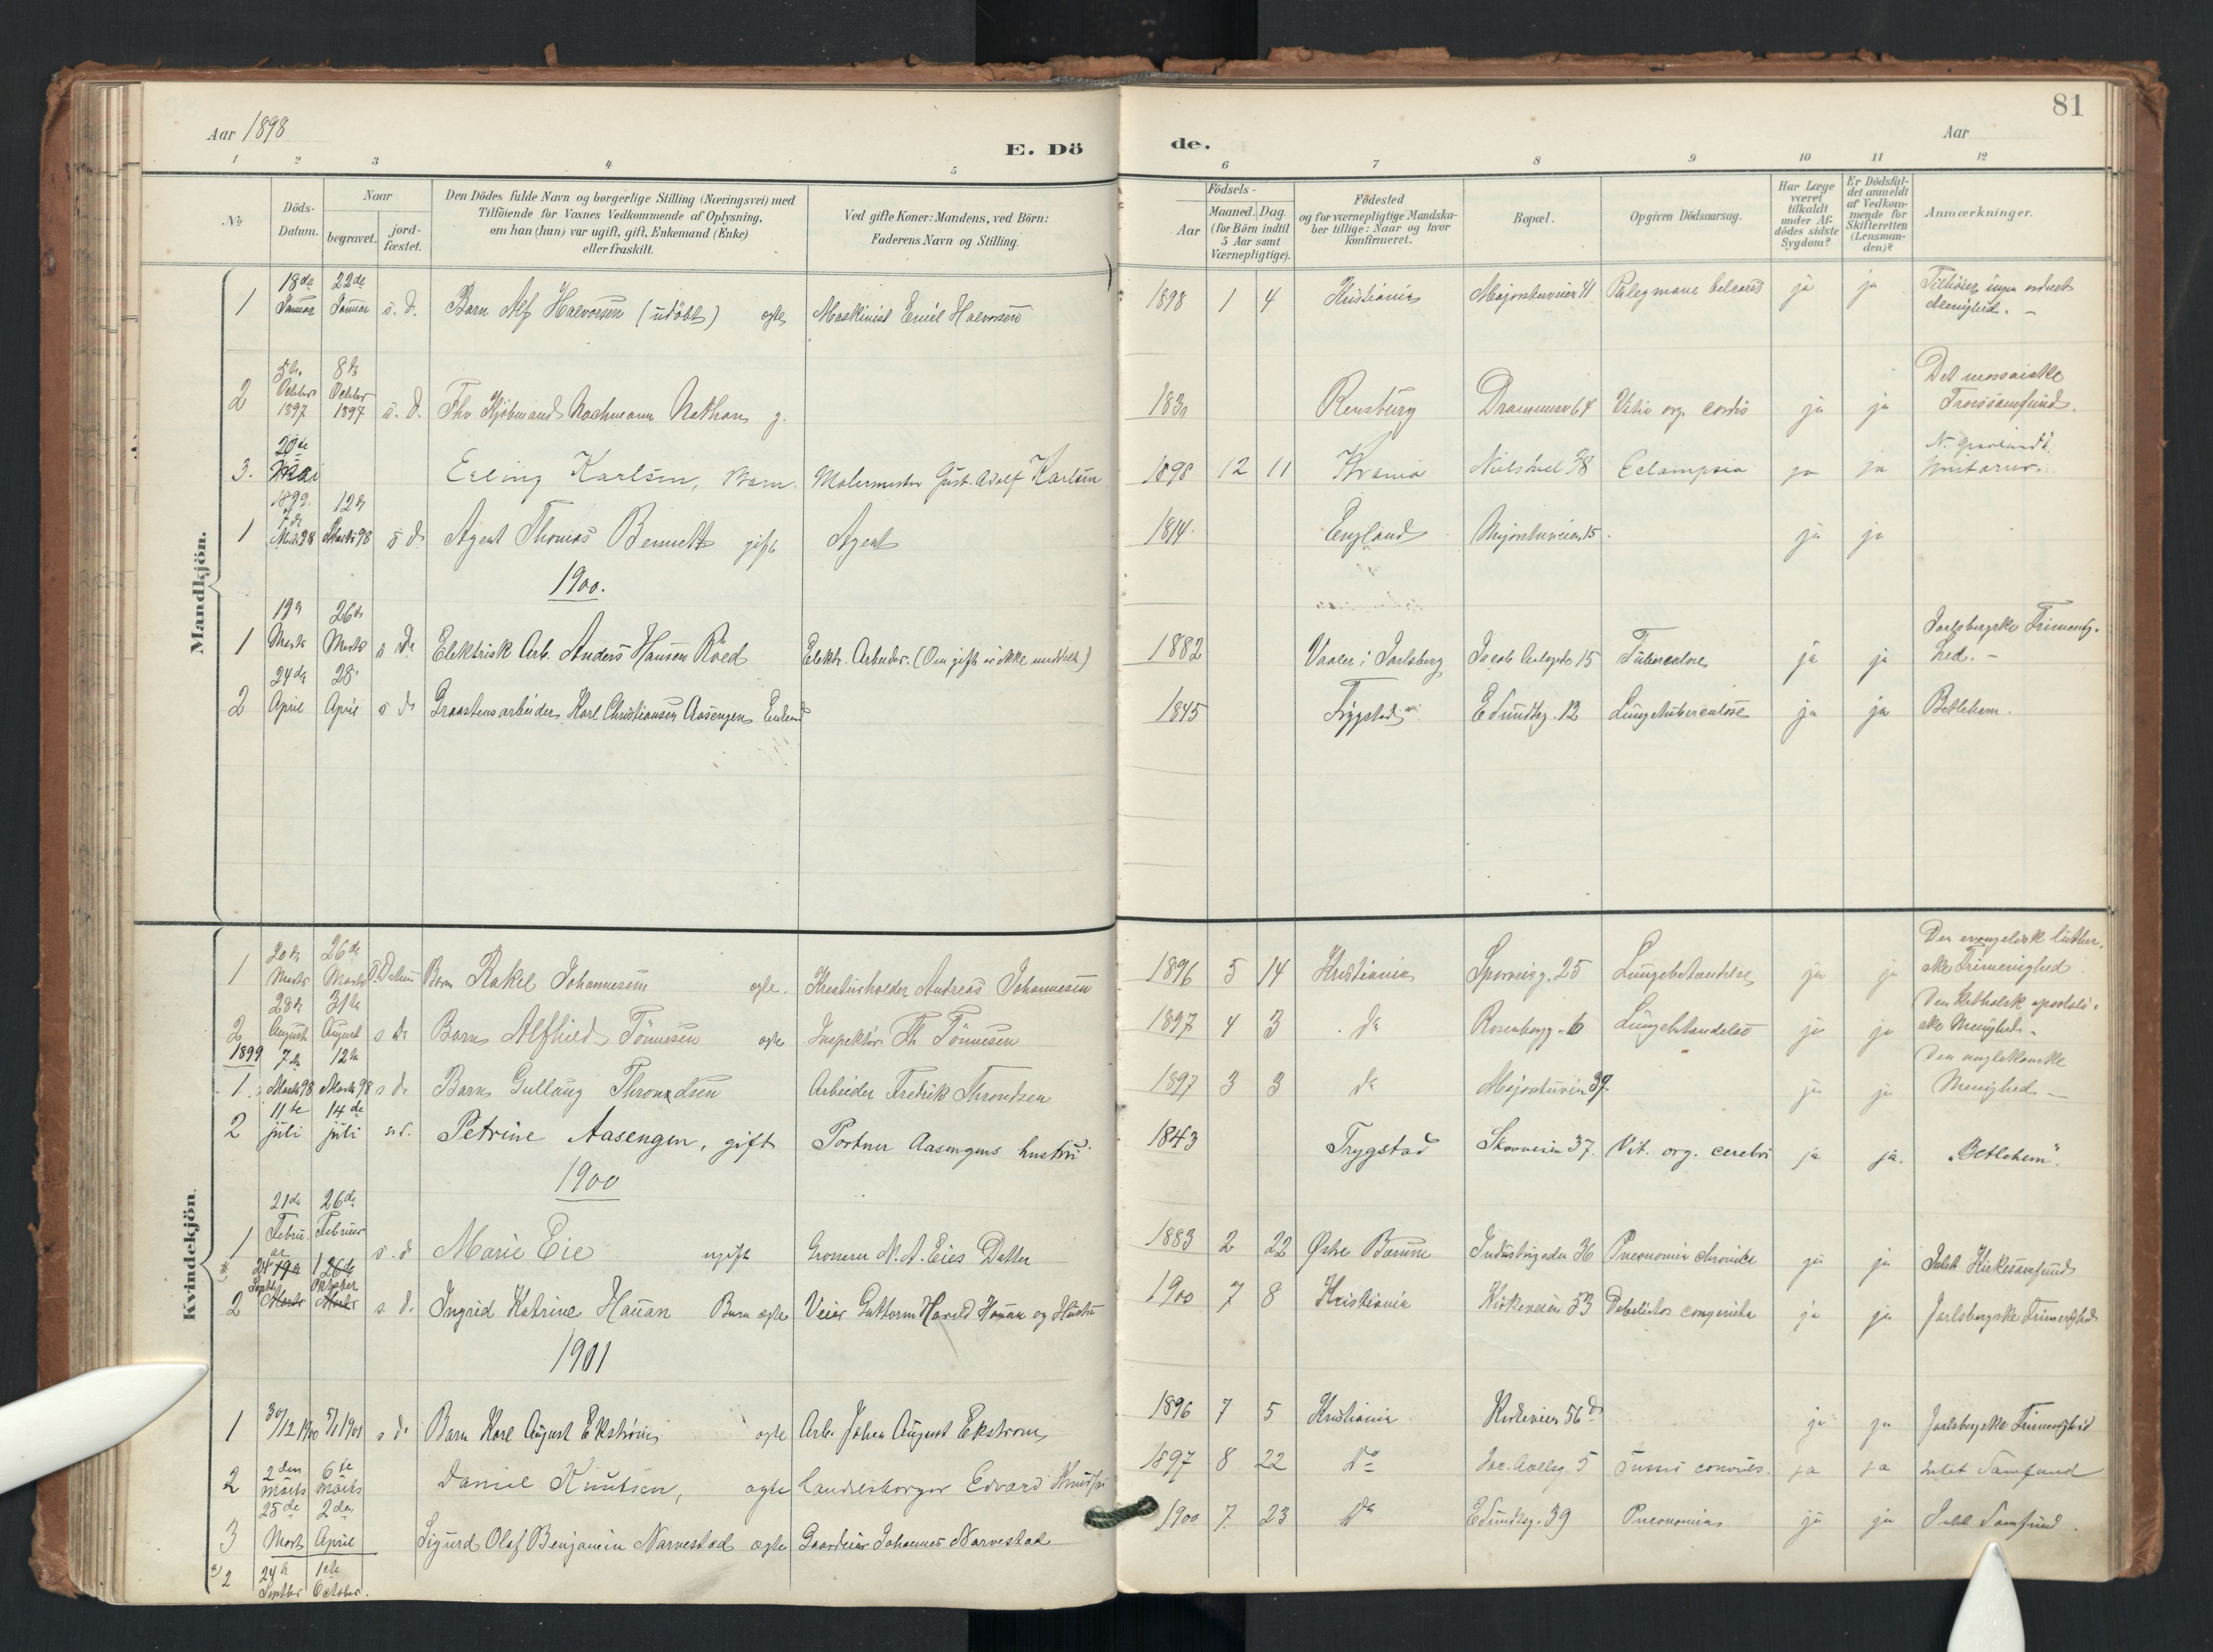 81
Aar 1898
E. Dö
de.
Aar
1 2 3 4 5 6 7 8 9 10 11 12
No
Döds-
Datum.
Naar
begravet.
jord-
fæstet.
Den Dödes fulde Navn og borgerlige Stilling (Næringsvei) med
Tilföiende for Voxnes Vedkommende af Oplysning,
om han (hun) var ugift, gift, Enkemand (Enke)
eller fraskilt.
Ved gifte Koner: Mandens, ved Börn:
Faderens Navn og Stilling.
Födsels-
Aar
Maaned. Dag.
(for Börn indtil
5 Aar samt
Værnepligtige).
Födested
og for værnepligtige Mandska-
ber tillige: Naar og hvor
konfirmeret.
Bopæl.
Opgiven Dödsaarsag.
Har Læge
været
tilkaldt
under Af-
dödes sidste
Sygdom?
Er Dödsfal-
det anmeldt
af Vedkom-
mende for
Skifteretten
(Lensman-
den)?
Anmærkninger.
Mandkjön.
1 18de Januar 22de Januar s. d. Barn Alf Halvorsen (udöbt) ægte Maskinist Emil Halvorsen 1898 1 4 Kristiania Majorstuveien 41 ja ja Tilhörer ingen ordnet
Menighed. -
2 5te October 1897 8de October 1897 s. d. Fhv. Kjöbmand Nachmann Nathan g. 183 Rensburg Drammensv 64 Vitiv org. cordis ja ja Det mosaiske
Troessamfund.
3. 20de Mai Erling Karlsen, Barn. Malermester Gust. Adolf Karlsen 1898 12 11 Krania Niels Juel 38 Eclampsia ja ja
1899.
1 7de Marts 98 12te Marts 98 s d. Agent Thomas Bennett gift Agent 1814 England Majorstuveien 15 ja ja
1900.
1 19de Marts 26de Marts s d. Elektrisk Arb. Anders Hansen Röed Elektr. Arbeider. (Om gift er ikke meddelt) 1882 Vaaler i Jarlsberg Jacob Aalsgde 15 Tuberculose ja ja Jarlsbergske Frimenig-
hed. -
2 24de April 28 April s d. Graastensarbeider Karl Christiansen Aasengen Enkemd 1845 Trygstad E Sundtsg. 12 Lungetuberculose ja ja Betlehem.
Kvindekjön.
1 20de Marts 26de Marts S. Datum Barn Rakel Johannesen ægte. Kreaturholder Andreas Johannesen 1896 5 14 Kristiania Sporveisg. 25 Lungebetændelse ja ja Den evangelisk luther-
ske Frimenighed
2 28de August 31te August s d. Barn Alfhild Tönnesen ægte Inspektör Th Tönnesen 1897 4 3 do Rosenborgg. 6 Lungebetændelse ja ja Den katholsk apostoli-
ske Menighed.
1899
1 7de Marts 98 12te Marts 98 s d. Barn Gullaug Throndsen Arbeider Fredrik Throndsen 1897 3 3 do Majorstuveien 37 ja ja Den anglikanske
Menighed -
2 11te juli 14de juli s.d. Petrine Aasengen, gift Portner Aasengens hustru. 1843 Trygstad Skovveien 37 Vit. org. cerebri ja ja. „Betlehem".
1900
1 21de Februar 26de Februar s. d Marie Eie ugift Grosserer N. A. Eies Datter 1883 2 22 Østre Bærum Industrigaden 36 Pneumonia chronica ja ja Luth Kirkesamfund
2 24 Septbr 1 Oktober s d. Ingrid Katrine Hauan Barn ægte Veier Guttorm Harald Hauan og Hustru 1900 7 8 Kristiania Kirkeveien 53 Debilitas congenita ja ja Jarlsbergske Frimenighed
1901
1 30/12 1900 5/1 1901 s d. Barn Karl August Ekström ægte Arb. Johan August Ekström 1896 7 5 Kristiania Kirkeveien 56 d ja ja Jarlsbergske Frimenighed
2 2den marts 6te marts Daniel Knutsen, ægte Handelsborger Edvard Knudsen 1897 8 22 do Jac. Aallsg. 5 ja ja Luth Samfund
3 25de Marts 2den April Sigurd Olaf Benjamin Narvestad ægte Gaardeier Johannes Narvestad 1900 7 23 do E Sundtsg. 39 Pneumonia ja ja Luth Samfund.
x) 2 24de Septbr 1ste October.